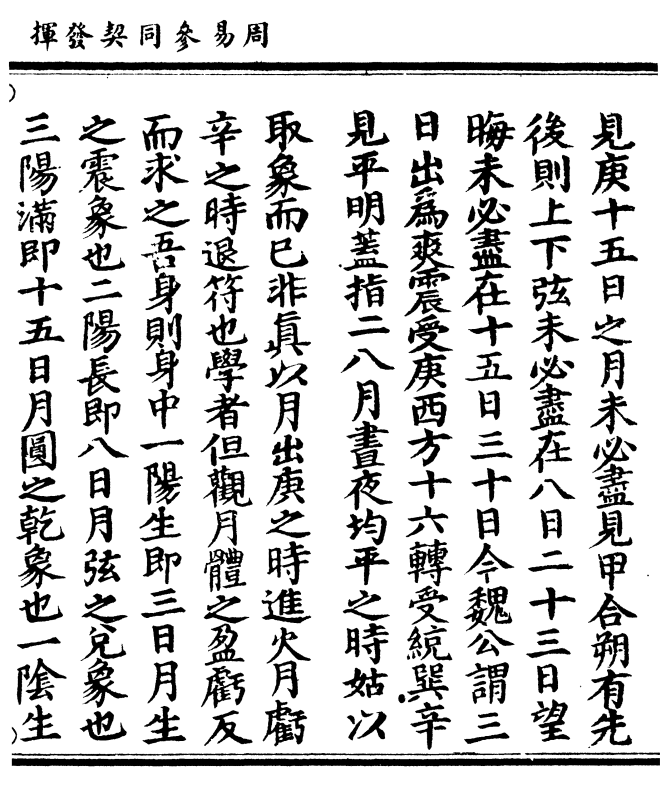 周易參同契發揮
見庚十五日之月未必盡見甲合朔有先
後則上下弦未必盡在八日二十三日望
晦未必盡在十五日三十日今魏公謂三
日出爲爽震受庚西方十六轉受統巽辛
見平明蓋指二八月晝夜均平之時姑以
取象而已非眞以月出庚之時進火月虧
辛之時退符也學者但觀月體之盈虧反
而求之吾身則身中一陽生即三日月生
之震象也二陽長即八日月弦之兌象也
三陽滿即十五日月圓之乾象也一陰生